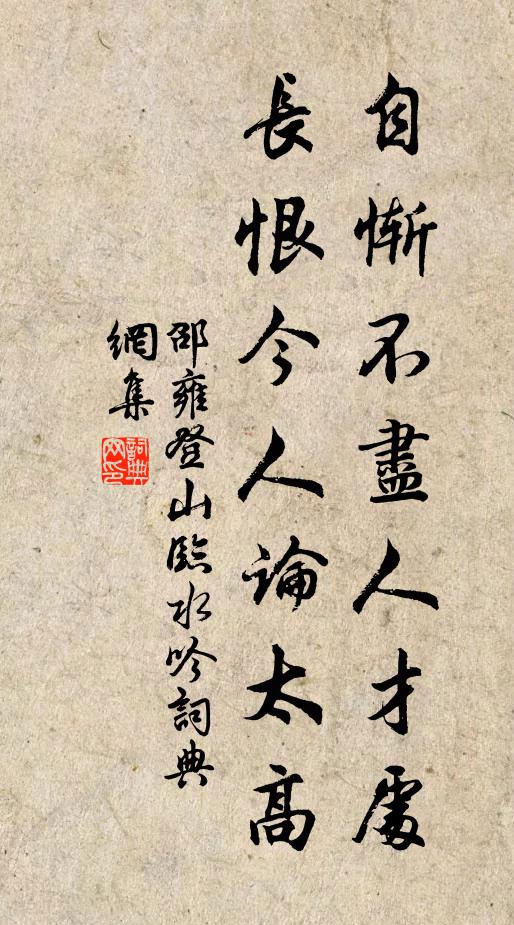 自慚不盡人才處
長恨今人論太高
邵雍登山臨水吟詞典
網集
詞典
网印